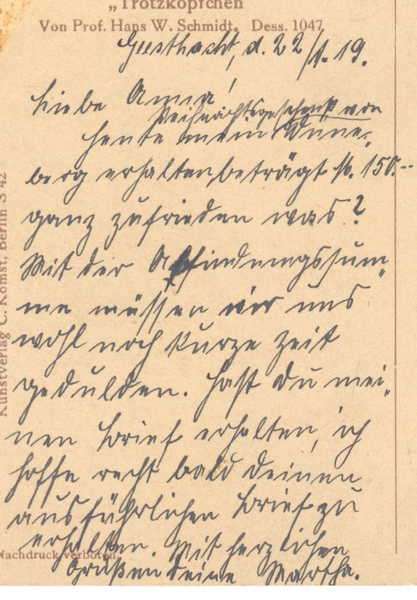 „Trotzköpfchen"
Von Prof. Hans W. Schmidt. Dess. 1047
Geesthacht, d. 22/1. 19.
Liebe Anna!
Weihnachtsgeschenk von
Heute mein Wune-
berg erhalten beträgt M. 150.--
ganz zufrieden was?
Mit der Abfindungssum-
me müssen wir uns
wohl noch kurze Zeit
gedulden. Hast Du mei-
nen Brief erhalten, ich
hoffe recht bald deinen
ausführlichen Brief zu
erhalten. Mit herzlichen
Grüßen deine Martha.
Nachdruck verboten.
Kunstverlag C. Komst, Berlin S 42